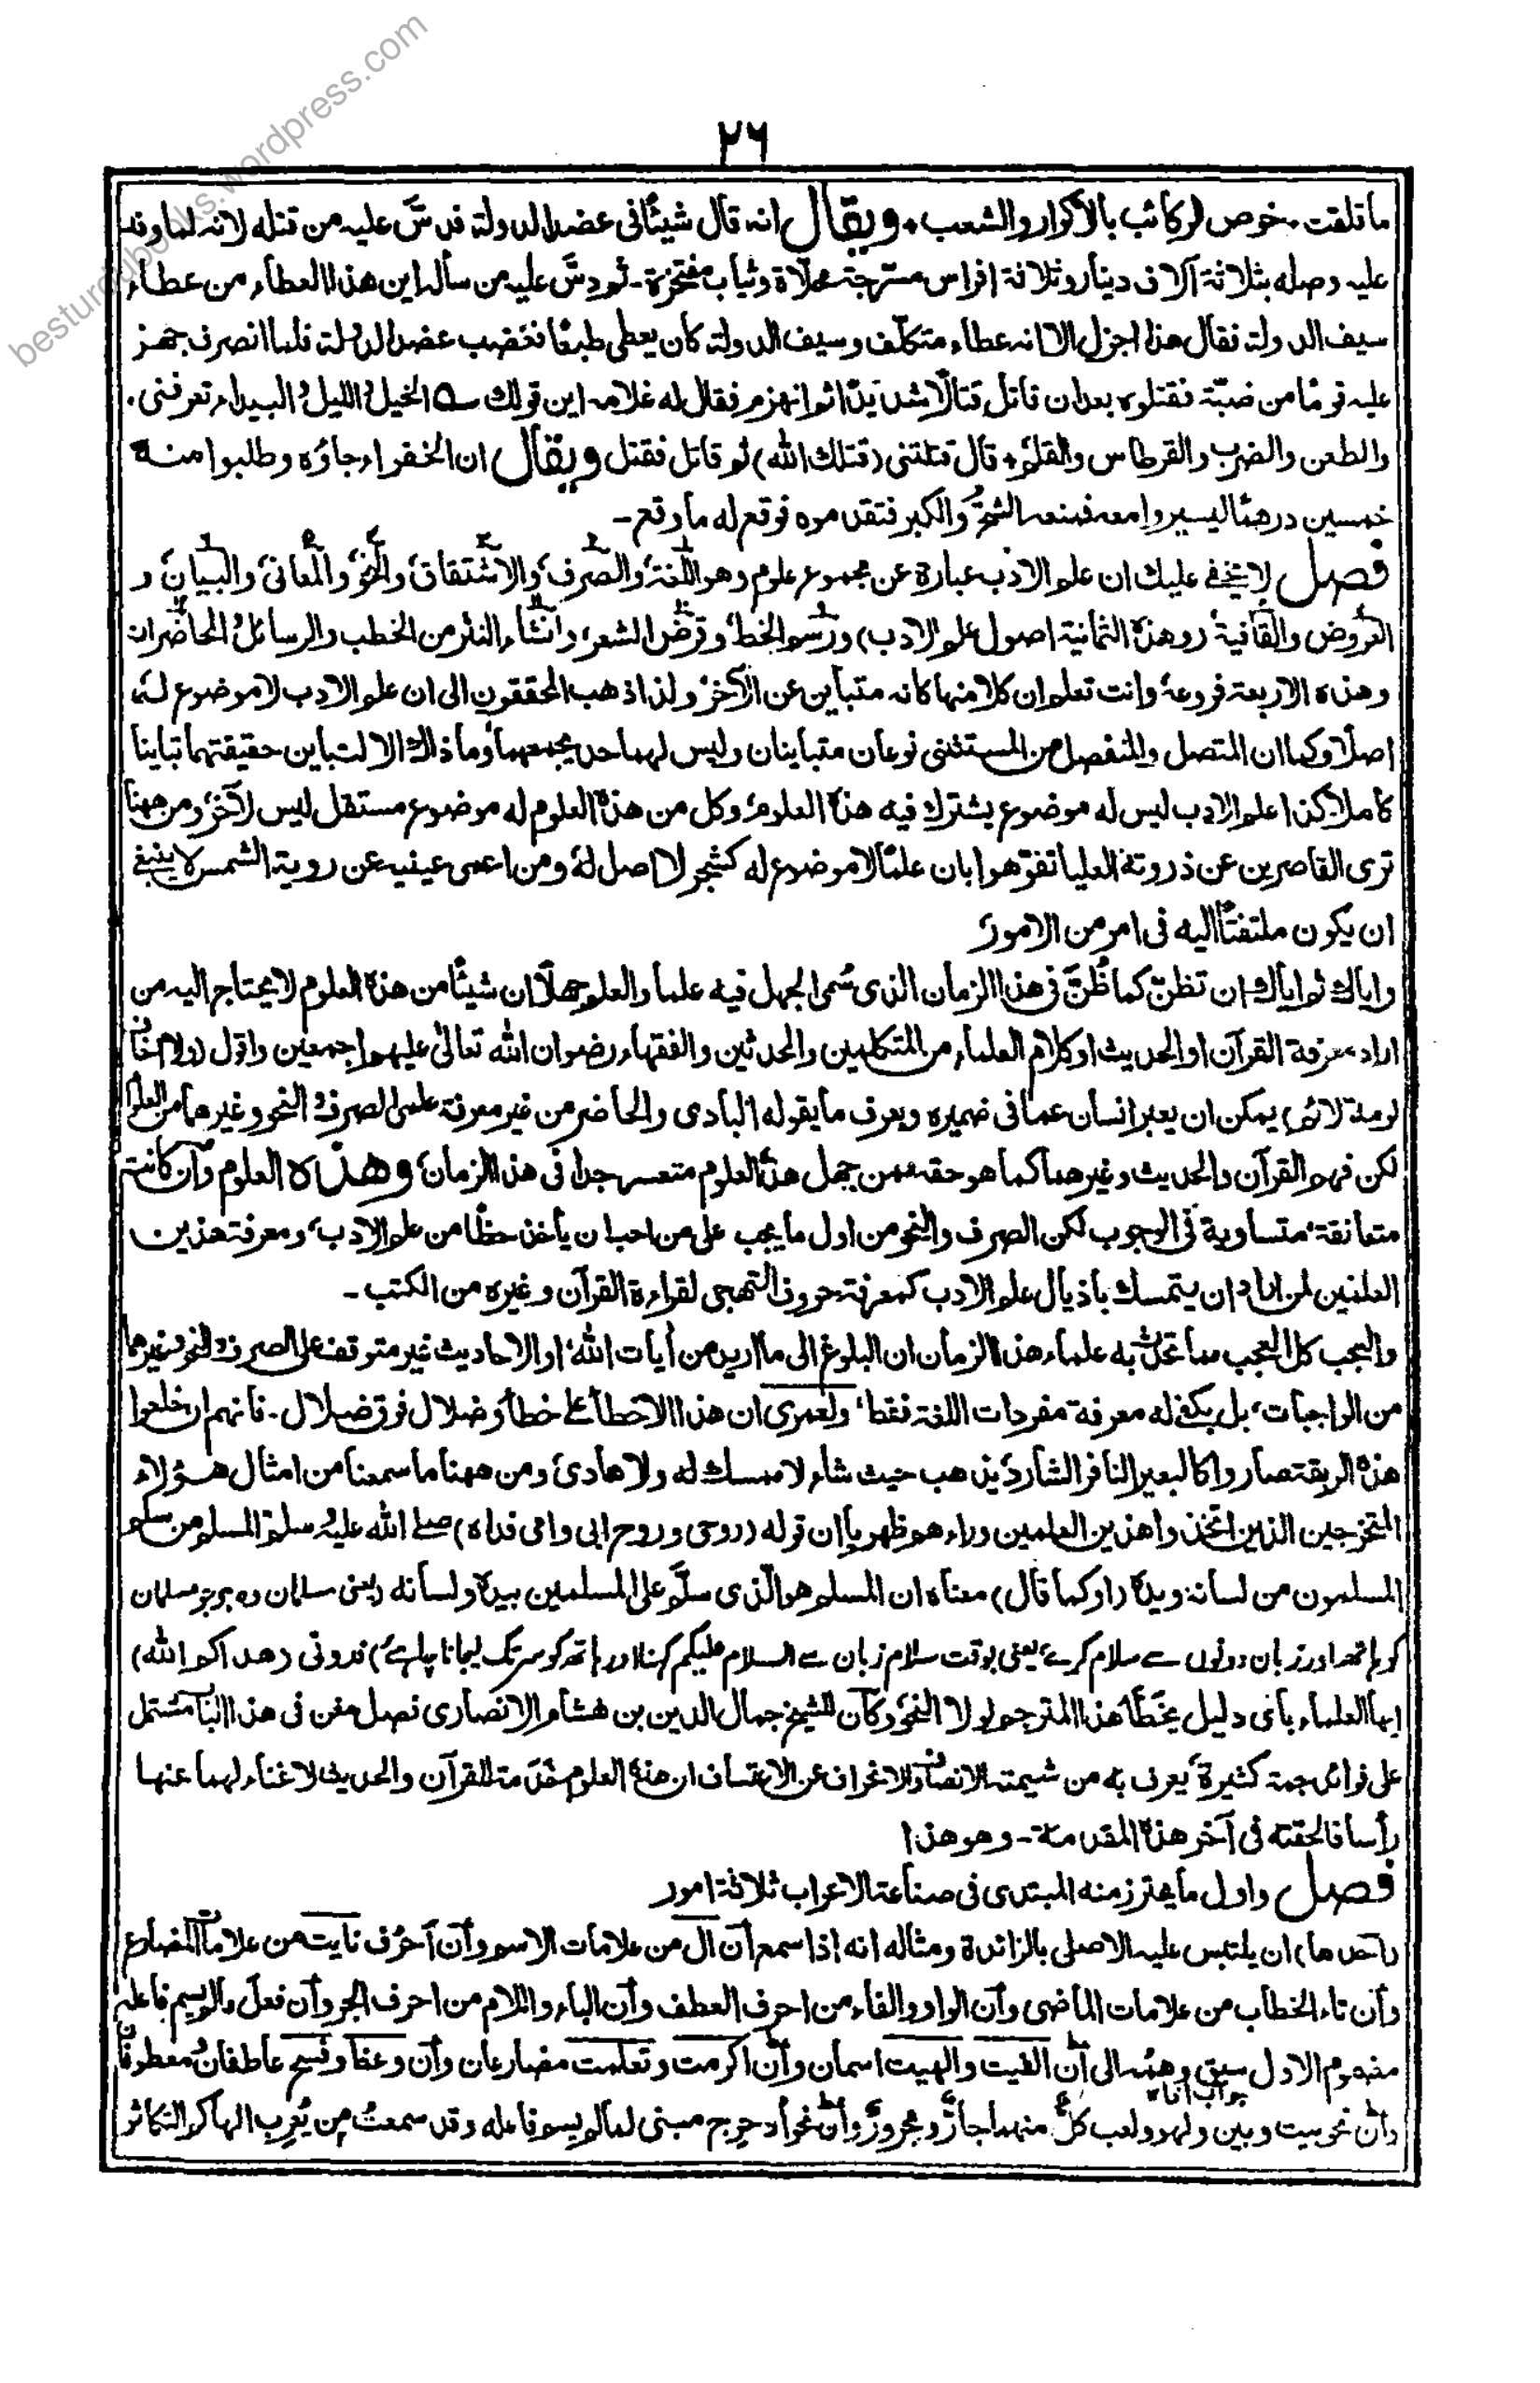 besturdubooks.wordpress.com
٢٦
ما تلقت ٠ خوص الركائب بالاكوار والشعب ٠ ويقال انه قال شيئًا فى عضد الدولة فدسَّ عليه من قتله لانه لما وفد
عليه وصله بثلاثة آلاف دينار وثلاثة افراس مسرجة محلاة وثياب مفتخرة ـ ثم دسَّ عليه من سأله اين هذا العطاء من عطاء
سيف الدولة فقال هذا اجزل الا انه عطاء متكلّف وسيف الدولة كان يعطى طبعًا فغضب عضد الدولة فلما انصرف جهز
عليه قومًا من ضبّة فقتلوه بعد ان قاتل قتالًا شديدًا ثم انهزم فقال له غلامه اين قولك ؎ الخيل والليل والبيداء تعرفنى ٠
والطعن والضرب والقرطاس والقلم ٠ قال قتلتنى (قتلك الله) ثم قاتل فقتل ويقال ان الخفراء جاؤه وطلبوا منه
خمسين درهمًا ليسيروا معه فمنعه الشحّ والكبر فتقدموه فوقع له ما وقع ـ
فصل لا يخفى عليك ان علم الادب عبارة عن مجموع علوم وهو اللغة، والصرف، والاشتقاق، والنحو، والمعانى، والبيان، و
العروض والقافية، (وهذه الثمانية اصول علم الادب) ورسم الخط، وقرض الشعر، وانشاء النثر من الخطب والرسائل، والمحاضرات
وهذه الاربعة فروعه، وانت تعلم ان كلا منها كانه متباين عن الآخر، ولذا ذهب المحققون الى ان علم الادب لا موضوع له،
اصلًا وكما ان المتصل والمنفصل من المستثنى نوعان متباينان وليس لهما حد يجمعهما، وما ذلك الا لتباين حقيقتهما تباينا
كاملا، كذا علم الادب ليس له موضوع يشترك فيه هذه العلوم، وكل من هذه العلوم له موضوع مستقل ليس لآخر، ومن ههنا
ترى القاصرين عن ذروته العليا تفوّهوا بان علمًا لا موضوع له كشجر لا اصل له، ومن اعمى عينيه عن روية الشمس لا ينبغى
ان يكون ملتفتًا اليه فى امر من الامور،
واياك ثم اياك ان تظنّ كما ظُنَّ فى هذا الزمان الذى سُمى الجهل فيه علما والعلم جهلًا ان شيئًا من هذه العلوم لا يحتاج اليه من
اراد معرفة القرآن او الحديث او كلام العلماء من المتكلمين والمحدثين والفقهاء رضوان الله تعالىٰ عليهم اجمعين واقول (ولا اخاف
لومة لائم) يمكن ان يعبر انسان عما فى ضميره ويعرف ما يقوله البادى والحاضر من غير معرفة علمى الصرف والنحو وغيرهما من العلوم
لكن فهم القرآن والحديث وغيرهما كما هو حقه ممن جهل هذه العلوم متعسر جدا فى هذا الزمان، وهذه العلوم وان كانت
متعانقة، متساوية فى الوجوب لكن الصرف والنحو من اول ما يجب على من احب ان يأخذ حظًا من علم الادب، ومعرفة هذين
العلمين لمن اراد ان يتمسك باذيال علم الادب كمعرفة حروف التهجى لقراءة القرآن وغيره من الكتب ـ
والعجب كل العجب مما تحدّث به علماء هذا الزمان ان البلوغ الى ما اريد من أيات الله، او الاحاديث غير متوقف على الصرف والنحو وغيرهما
من الواجبات، بل يكفى له معرفة مفردات اللغة فقط، ولعمرى ان هذا الا خطأ على خطأ وضلال فوق ضلال ـ فانهم ان خلعوا
هذه الربقة صاروا كالبعير النافر الشارد يذهب حيث شاء لا ممسك له ولا هادى، ومن ههنا ما سمعنا من امثال هؤلاء
المتخرجين الذين اتخذوا هذين العلمين وراءهم ظهريا ان قوله (روحى وروح ابى وامى فداه) صلى الله عليه وسلم المسلم من سلم
المسلمون من لسانه ويده (او كما قال) معناه ان المسلم هو الّذى سلّم على المسلمين بيده ولسانه (یعنی مسلمان وہ ہے جو مسلمان
کو ہاتھ اور زبان دونوں سے سلام کرے، یعنی بوقت سلام زبان سے السلام علیکم کہنا اور ہاتھ کو سر تک لیجانا چاہئے) فدونى (هداكم الله)
ايها العلماء باى دليل يخطّأ هذا المترجم لو لا النحو، وكان للشيخ جمال الدين بن هشام الانصارى فصل مفن فى هذا الباب مشتمل
على فوائد جمة كثيرة، يعرف به من شيمته الانصاف والانحراف عن الاعتساف ان هذه العلوم مقدمة للقرآن والحديث لا غناء لهما عنها
رأسا فالحقته فى آخر هذه المقدمة ـ وهو هذا
فصل واول ما يحترز منه المبتدى فى صناعة الاعراب ثلاثة امور
(احدها) ان يلتبس عليه الاصلى بالزائدة ومثاله انه اذا سمع أن ال من علامات الاسم وأن أحرُف نأيت من علامات المضارع
وأن تاء الخطاب من علامات الماضى وأن الواو والفاء من احرف العطف وأن الباء واللام من احرف الجر وأن فعل مالم يسم فاعله
مضموم الاول سبق وهمه الى أن الفيت والهيت اسمان وأن اكرمت وتعلمت مضارعان وأن وعظ وفسخ عاطفان ومعطوفان
جواب اذا ١٢
وأن نحو بيت وبين ولهو ولعب كلٌّ منهما جارٌّ ومجرورٌ، وأن نحو أدحرج مبنى لما لم يسم فاعله وقد سمعتُ من يُعرب الهاكم التكاثر